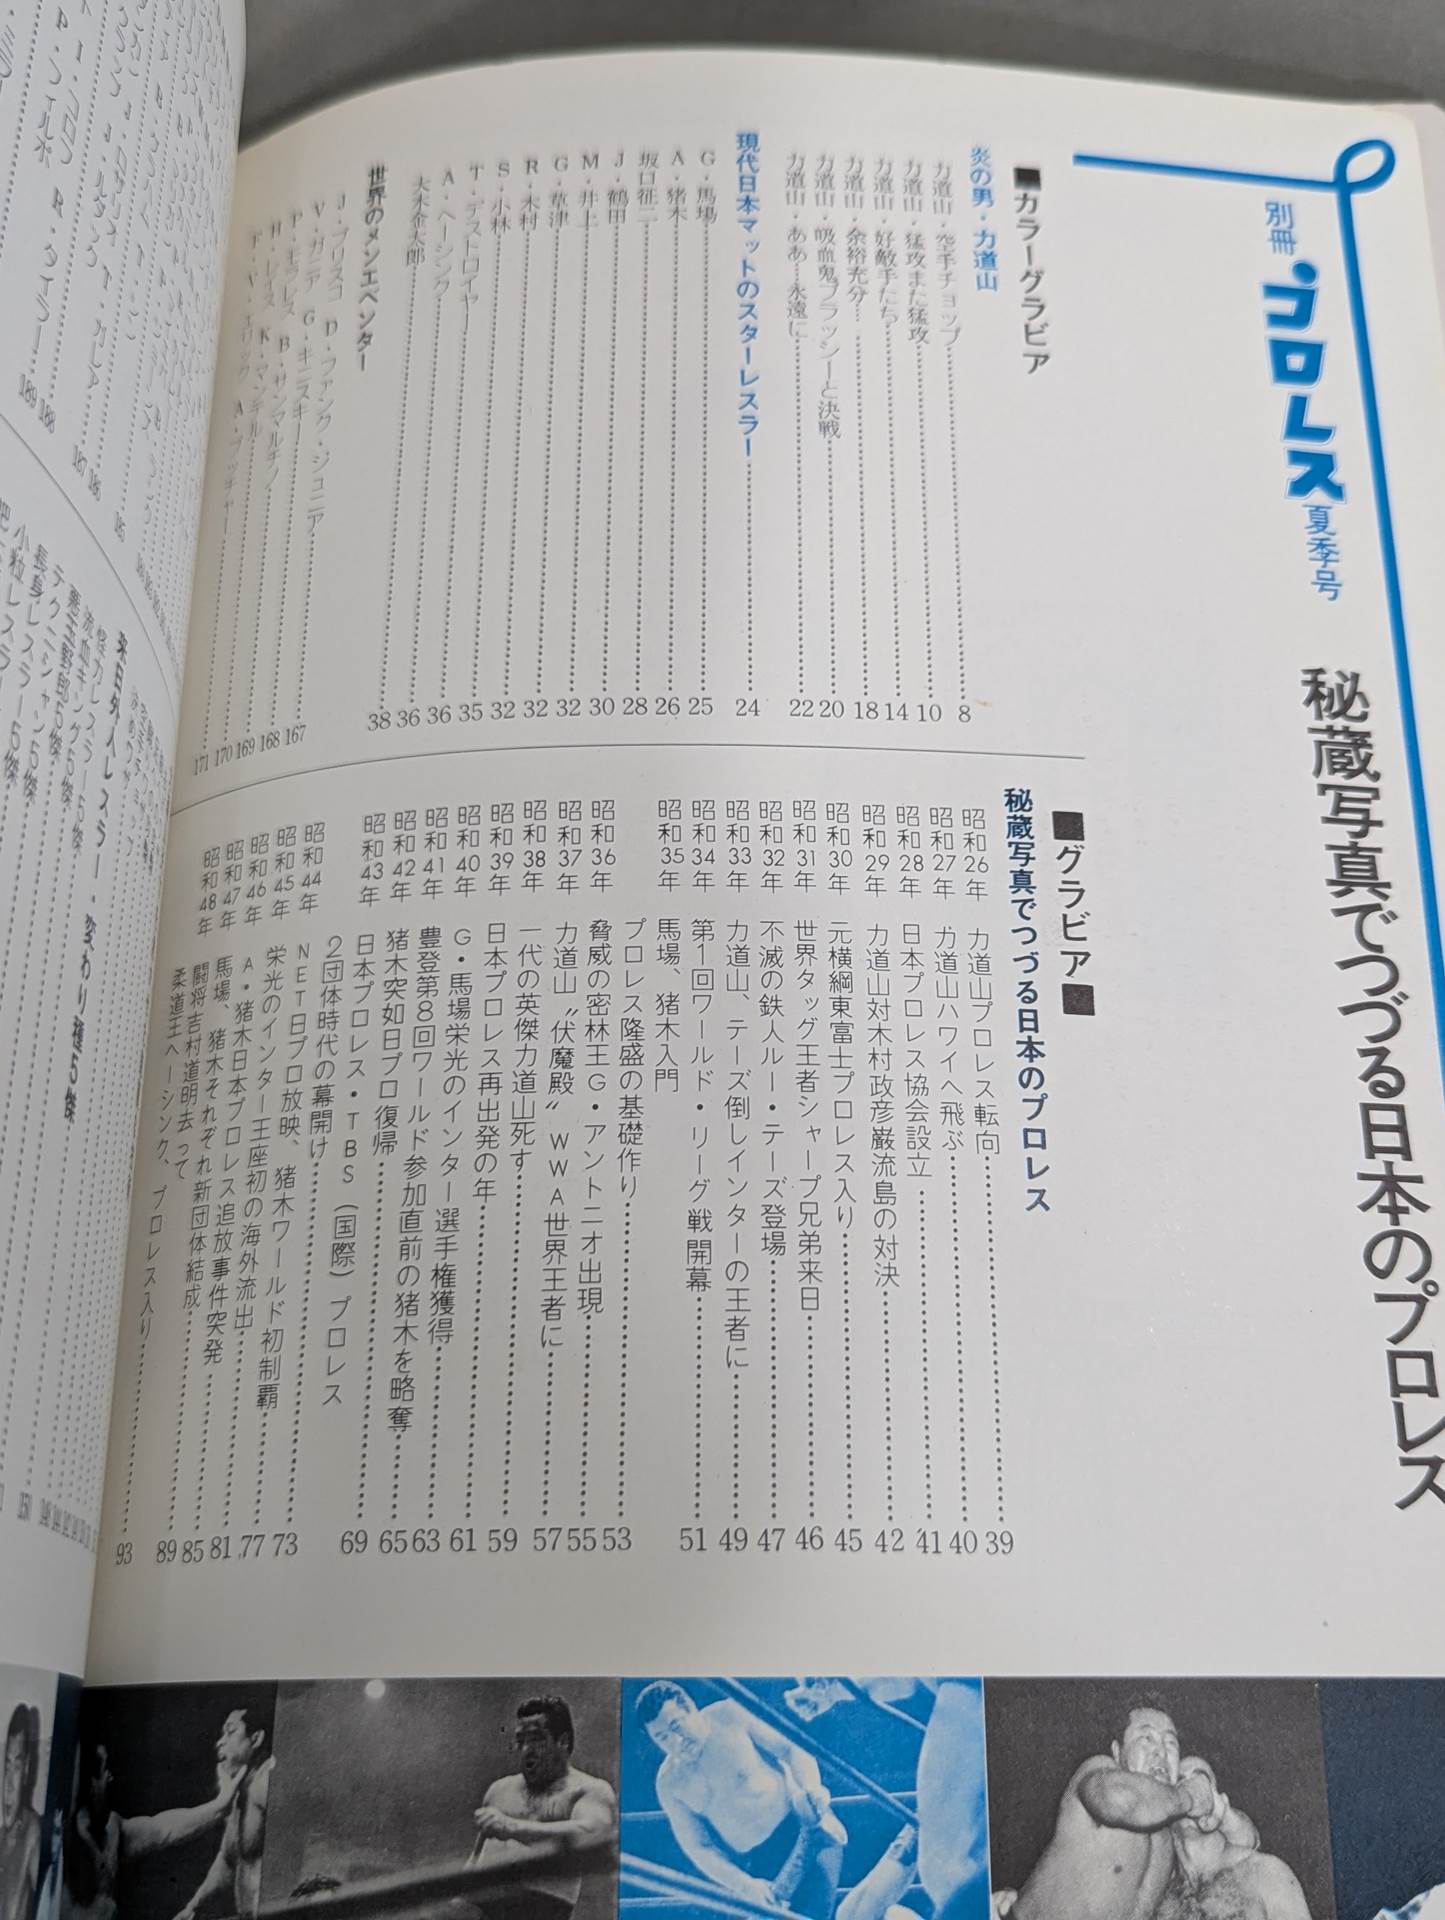 別冊プロレス夏季号
秘蔵写真でつづる日本のプロレス
■カラーグラビア
炎の男・力道山
力道山・空手チョップ……8
力道山・猛攻また猛攻……10
力道山・好敵手たち……14
力道山・余裕充分……18
力道山・吸血鬼ブラッシーと決戦……20
力道山・ああ…永遠に……22
現代日本マットのスターレスラー……24
G・馬場……25
A・猪木……26
坂口征二……28
J・鶴田……30
M・井上……32
G・草津……32
R・木村……32
S・小林……35
T・デストロイヤー……36
A・ヘーシング……36
大木金太郎……38
世界のメンエベンター
J・ブリスコ D・ファンク・ジュニア……167
V・ガニア G・キニスキー……168
P・モラレス B・サンマルチノ……169
H・レイス K・マンテル……170
F・V・エリック A・ブッチャー……171
■グラビア■
秘蔵写真でつづる日本のプロレス
昭和26年 力道山プロレス転向……39
昭和27年 力道山ハワイへ飛ぶ……40
昭和28年 日本プロレス協会設立……41
昭和29年 力道山対木村政彦巌流島の対決……42
昭和30年 元横綱東富士プロレス入り……45
昭和31年 世界タッグ王者シャープ兄弟来日……46
昭和32年 不滅の鉄人ルー・テーズ登場……47
昭和33年 力道山、テーズ倒しインターの王者に……49
昭和34年 第1回ワールド・リーグ戦開幕……51
昭和35年 馬場、猪木入門
プロレス隆盛の基礎作り……53
昭和36年 脅威の密林王G・アントニオ出現……55
昭和37年 力道山〝伏魔殿〟WWA世界王者に……57
昭和38年 一代の英傑力道山死す……59
昭和39年 日本プロレス再出発の年……61
昭和40年 G・馬場栄光のインター選手権獲得……63
昭和41年 豊登第8回ワールド参加直前の猪木を略奪……65
昭和42年 猪木突如日プロ復帰
昭和43年 日本プロレス・TBS(国際)プロレス
2団体時代の幕開け……69
昭和44年 NET日プロ放映、猪木ワールド初制覇……73
昭和45年 栄光のインター王座初の海外流出……77
昭和46年 A・猪木日本プロレス追放事件突発……81
昭和47年 馬場、猪木それぞれ新団体結成……85
昭和48年 闘将吉村道明去って……89
柔道王ヘーシンク、プロレス入り……93
来日外人レスラー・変わり種5傑
怪力レスラー5傑
流血キング5傑
悪玉野郎5傑
テクニシャン5傑
長身レスラー5傑